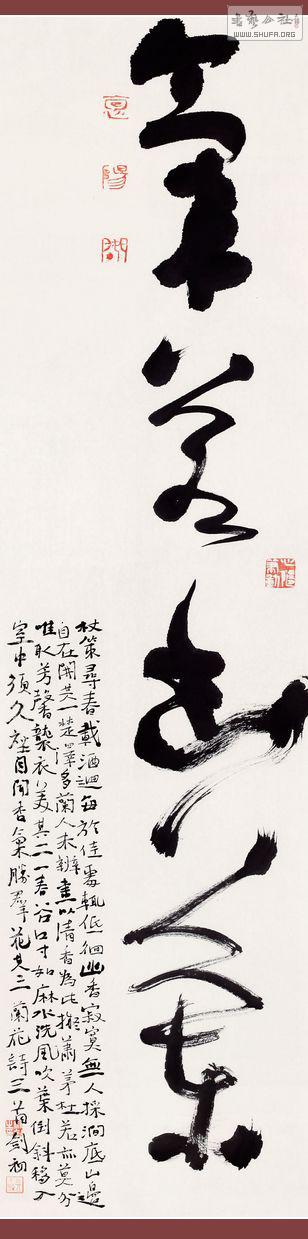 書藝公社
WWW.SHUFA.ORG
氣若幽蘭
杖策尋春載酒迴每於佳處輒低徊幽香寂寞無人採澗底山邊
自在開其一楚澤多蘭人未辨盡以清香為比擬蕭茅杜若亦莫分
唯取芳馨襲衣美其二一春谷口寸如麻水洗風吹葉倒斜移入
室中須久座自聞香氣勝群花其三蘭花詩三首劍初